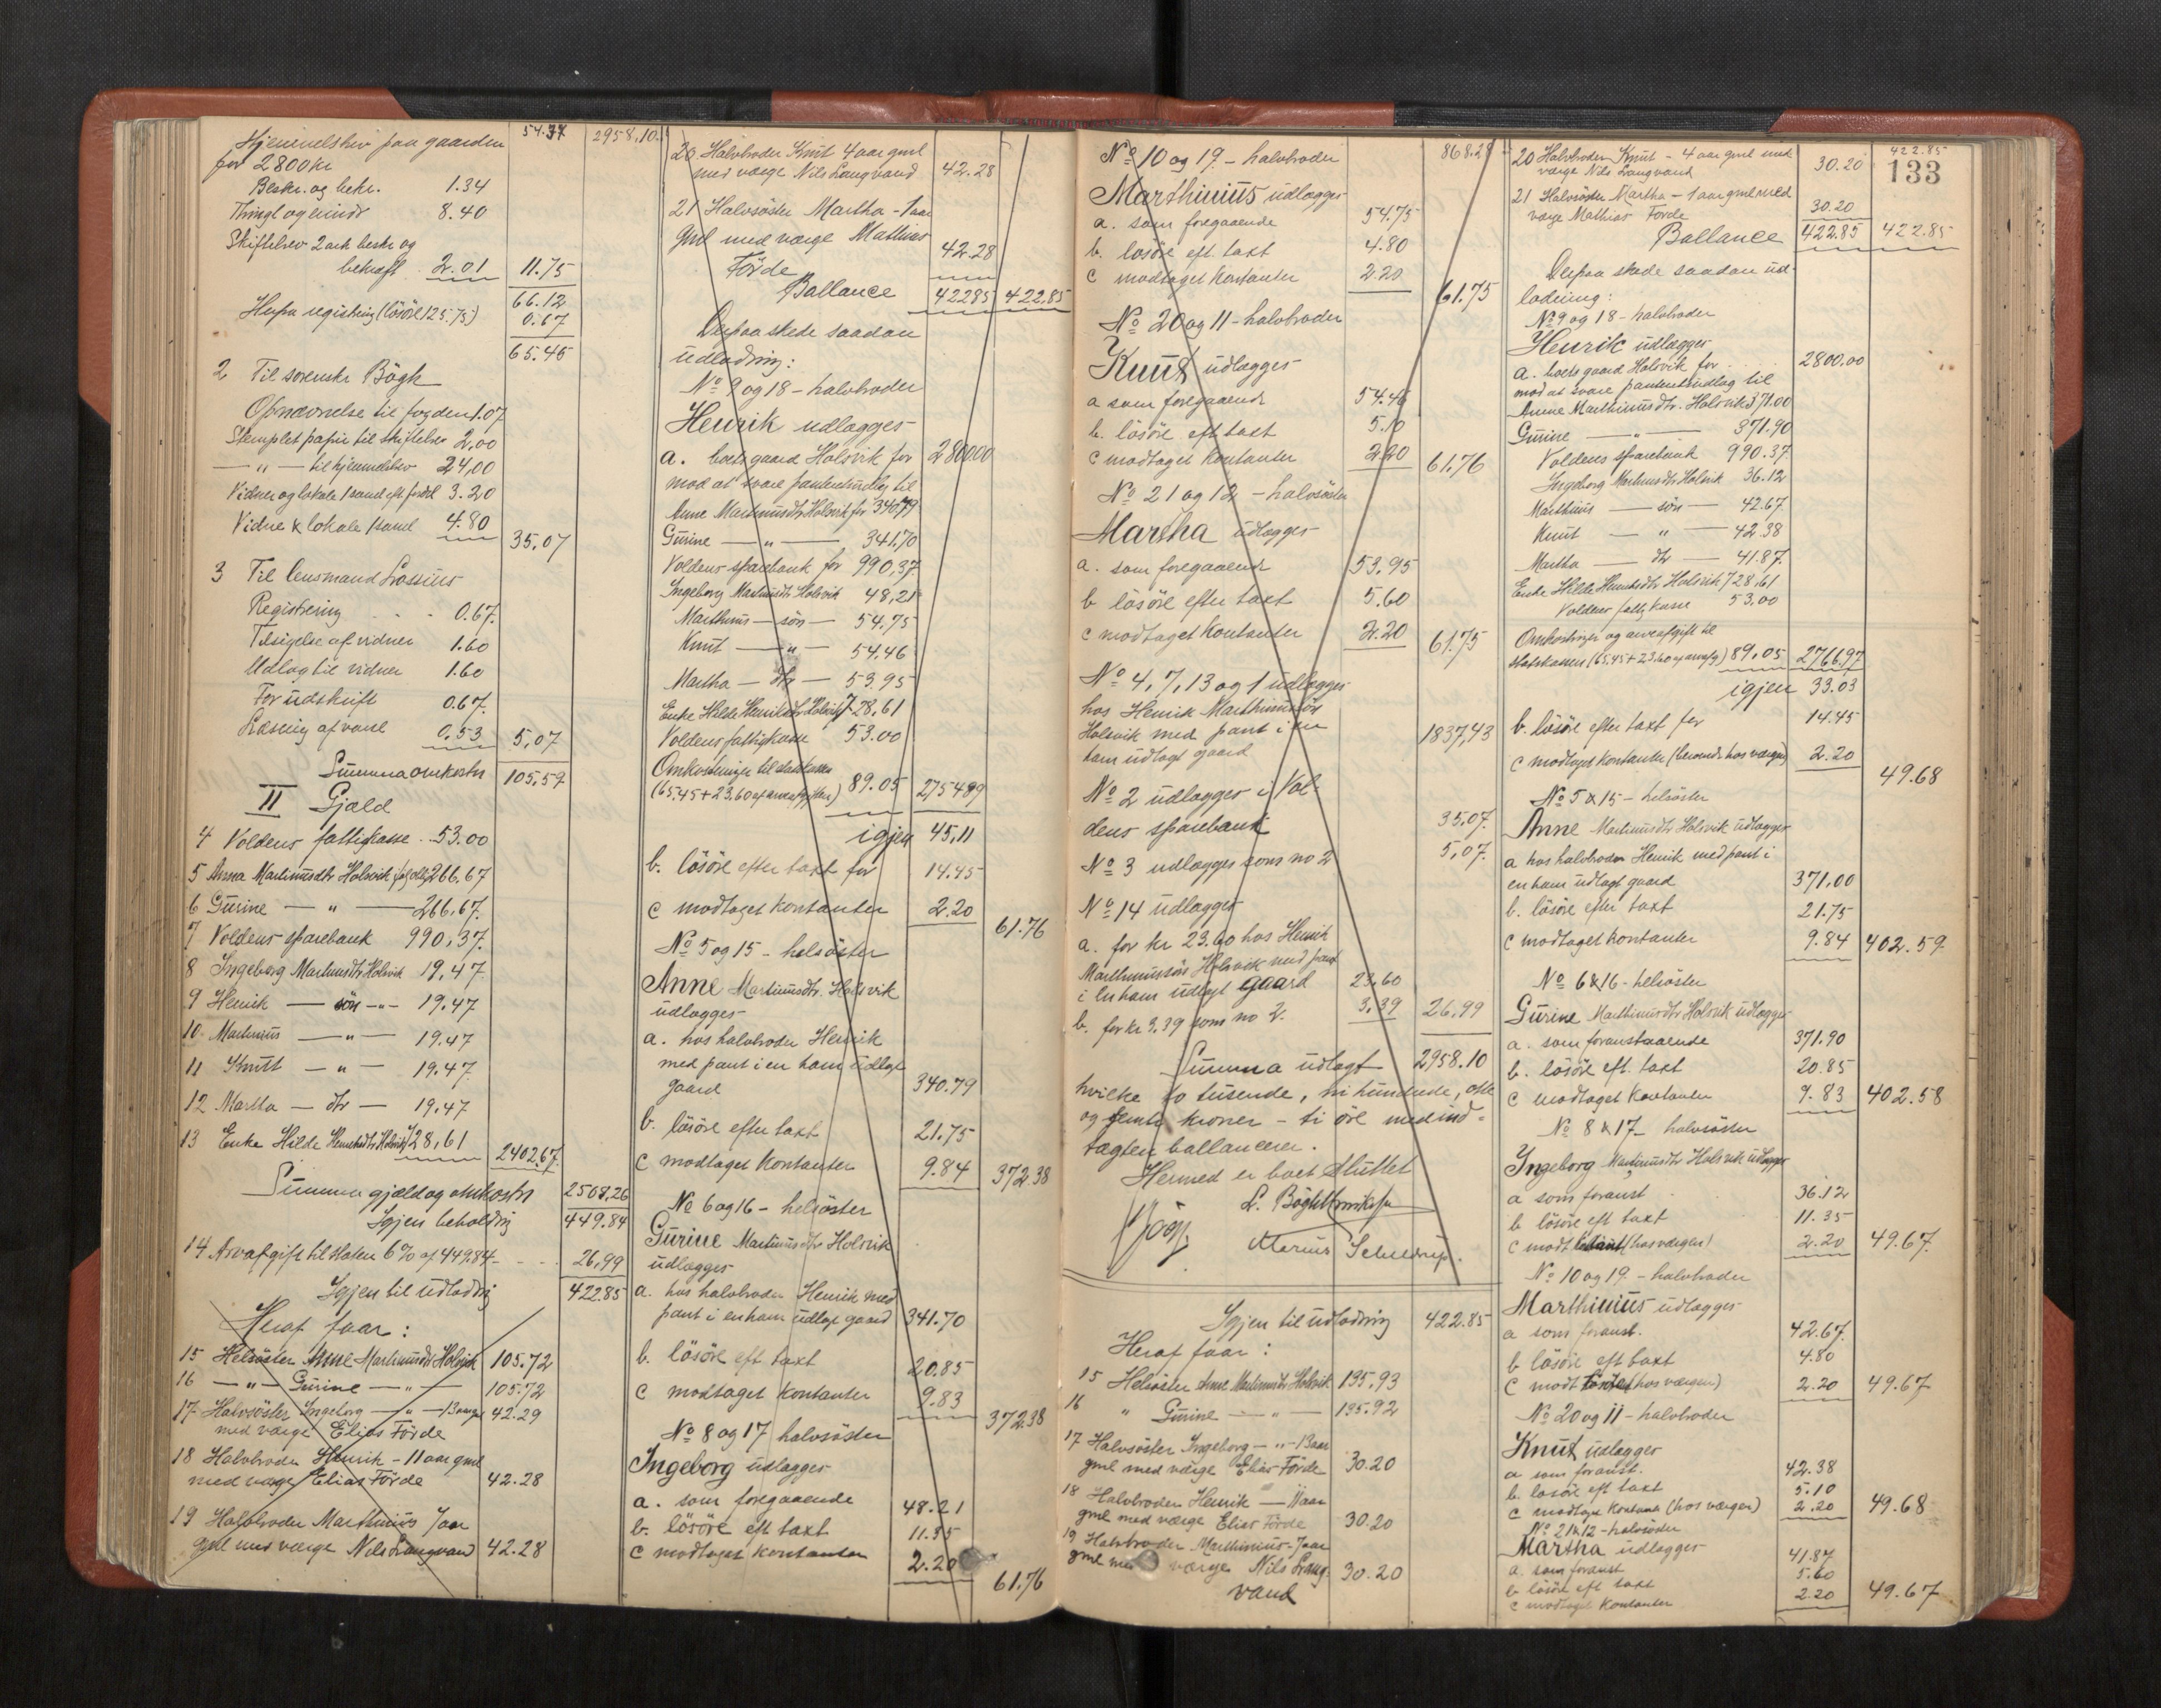 54.37 2958.10
Hjemmelsbrev paa gaarden
for 2800 kr
Beskr. og bekr. 1.34
Thingl og erindr 8.40
Skiftebrev 2 ark beskr og
bekræft 2.01 11.75
66.12
Herfra registering (løsöre 125.75) 0.67
65.45
2 Til sorenskr Bögh
Opnævnelse til fogden 1.07
Stemplet papir til skiftebr 2.00
— " — til hjemmelsbrev 24,00
Vidner og lokale 1 samd eft fordel 3.20
Vidner & lokale 1 samd 4.80 35,07
3 Til lensmand Lossius
Registrering 0.67.
Tilsigelse af vidner 1.60
Udlag til vidner 1.60
For udskrift 0.67.
Læsning af varsel 0.53 5,07
Summa omkostn 105,59
II Gjæld
4 Voldens fattigkasse 53.00
5 Anna Martinusdtr Holsvik 266.67
6 Gurine — " — 266.67.
7 Voldens sparebank 990.37.
8 Ingeborg Martinusdtr Holsvik 19,47
9 Henrik — sön — " — 19.47
10. Martinius — " — 19.47
11 Knut — " — 19.47
12 Martha — dtr — 19.47
13 Enke Hilde Henriksdtr Holsvik 728,61 2402.67
Summa gjæld og omkostn 2508,26
Igjen beholdng 449.84
14 Arvafgift til staten 6% af 449.84 26,99
Igjen til udlodng 422.85
Heraf faar:
15 Helsöster Anne Martinusdtr Holsvik 105.72
16 — " — Gurine — " — 105.72
17 Halvsöster Ingeborg — " — 13 aar gl 42.29
med værge Elias Förde
18 Halvbroder Henrik - 11 aar gml
med værge Elias Förde 42.28
19 Halvbroder Marthinius 7 aar
gml med værge Nils Langvand 42.28
20 Halvbroder Knut 4 aar gml
med værge Nils Langvand 42.28
21 Halvsöster Martha - 1 aar
gml med værge Mathias
Förde 42.28
Ballance 422.85 422.85
Derpaa skede saadan
udlodning:
No 9 og 18 - halvbroder
Henrik udlægges
a. boets gaard Holsvik for 2800.00
mod at svare panteudlæg til
Anne Martinusdtr Holsvik for 340.79
Gurine — " — 341.70
Voldens sparebank for 990,37.
Ingeborg Martinusdtr Holsvik 48,21
Marthinus — sön — 54,75
Knut — " — 54.46
Martha — dtr — 53.95
Enke Hilde Henriksdtr Holsvik 728,61
Voldens fattigkasse 53.00
Omkostninger til statskassen
(65.45 + 23.60 af arveafgiften) 89.05 2754.89
igjen 45,11
b. lösöre efter taxt for 14.45
c modtaget kontanter 2.20 61.76
No 5 og 15 - helsöster
Anne Martinusdtr. Holsvik
udlægges
a. hos halvbroder Henrik
med pant i en ham udlagt
gaard 340.79
b. lösöre efter taxt 21.75
c modtaget kontanter 9.84 372.38
No 6 og 16 - helsöster
Gurine Martinusdtr Holsvik
udlægges
a. hos halvbroder Henrik med
pant i en ham udlagt gaard 341.70
b. lösöre eft taxt 20.85
c modtaget kontanter 9.83 372.38
No 8 og 17 halvsöster
Ingeborg udlægges
a. som foregaaende 48.21
b. lösöre eft taxt 11.35
c modtaget kontanter 2.20 61.76
868.28
No 10 og 19 - halvbroder
Marthinius udlægges
a. som foregaaende 54.75
b. lösöre eft. taxt 4.80
c modtaget kontanter 2.20 61.75
No 20 og 11 - halvbroder
Knut udlægges
a som foregaaende 54.46
b. lösöre eft taxt 5.10
c modtaget kontanter 2.20 61.76
No 21 og 12 - halvsöster
Martha udlægges
a. som foregaaende 53.95
b lösöre efter taxt 5.60
c modtaget kontanter 2.20 61.75
No 4, 7, 13 og 1 udlægges
hos Henrik Marthinussön
Holsvik med pant i en
ham udlagt gaard 1837,43
No 2 udlægges i Vol-
dens sparebank 35.07.
No 3 udlægges som no 2 5,07.
No 14 udlægges
a. for kr 23.60 hos Henrik
Marthinussön Holsvik med pant
i en ham udlagt gaard 23.60
b. for kr 3.39 som no 2. 3.39 26,99
Summa udlagt 2958.10
hvilke to tusende, ni hundrede, otte
og femti kroner - ti öre med ind-
tægten ballancerer.
Hermed er boet sluttet
Marius Scheldrup.
Igjen til udlodning 422.85
Heraf faar:
15 Helsöster Anne Martinusdtr Holsvik 135,93
16 " Gurine — " — 135.92
17 Halvsöster Ingeborg — " — 13 aar
gml med værge Elias Förde 30.20
18 Halvbroder Henrik — 11 aar
gml med værge Elias Förde 30.20
19 Halvbroder Marthinius - 7 aar
gml med værge Nils Lang-
vand 30.20
422.85
133
20 Halvbroder Knut - 4 aar gml med
værge Nils Langvand 30.20
21 Halvsöster Martha - 1 aar gml med
værge Mathias Förde 30.20
Ballance 422.85 422.85
Derpaa skede saadan ud-
lodning:
No 9 og 18 - halvbroder
Henrik udlægges
a. boets gaard Holsvik for 2800.00
mod at svare panteudlæg til
Anne Marthinusdtr. Holsvik 371.00
Gurine — " — 371.90
Voldens sparebank 990.37
Ingeborg Martinusdtr Holsvik 36.12
Marthinus — sön — 42.67.
Knut — " — 42.38
Martha — dtr — 41.87.
Enke Hilde Henriksdtr Holsvik 728,61
Voldens fattigkasse 53,00
Omkostninger og arveafgift til
statskassen (65.45 + 23.60 af arveafg) 89,05 2766.97
igjen 33.03
b. lösöre efter taxt for 14.45
c modtaget kontanter (beroende hos værgen) 2.20 49.68
No 5 & 15 - helsöster
Anne Martinusdtr Holsvik udlægges
a hos halvbroder Henrik med pant i
en ham udlagt gaard 371.00
b. lösöre efter taxt 21.75
c modtaget kontanter 9.84 402.59
No 6 & 16 - helsöster
Gurine Marthinusdtr Holsvik udlægges
a. som foranstaaende 371.90
b. lösöre eft. taxt 20.85
c modtaget kontanter 9.83 402.58
No 8 & 17 - halvsöster
Ingeborg Martinusdtr Holsvik udlægges
a som foranst 36.12
b lösöre eft taxt 11.35
c modt kontant (hos værgen) 2.20 49.67.
No 10 og 19 - halvbroder
Marthinius udlægges
a som foranst. 42.67.
b lösöre eft taxt 4.80
c modt (hos værgen) 2.20 49.67
No 20 og 11 - halvbroder
Knut udlægges
a som foranst. 42.38
b. lösöre eft taxt 5.10
c modtaget kontant (hos værgen) 2.20 49.68
No 21 & 12 - halvsöster
Martha udlægges
a. som foranst 41.87
b lösöre eft taxt 5.60
c modtaget kontanter 2.20 49.67